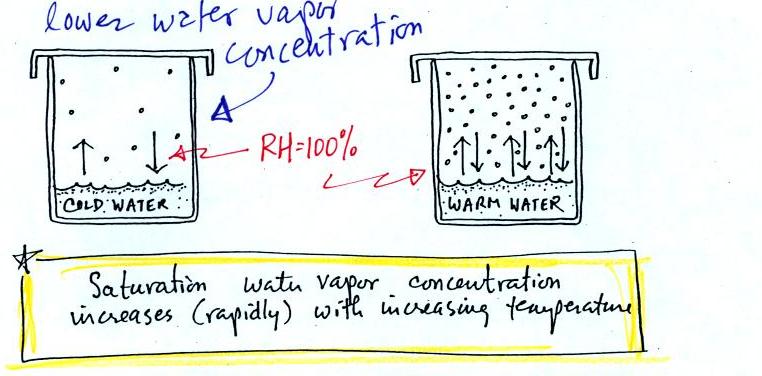 lower water vapor
concentration
RH=100%
COLD WATER
WARM WATER
Saturation water vapor concentration
increases (rapidly) with increasing temperature